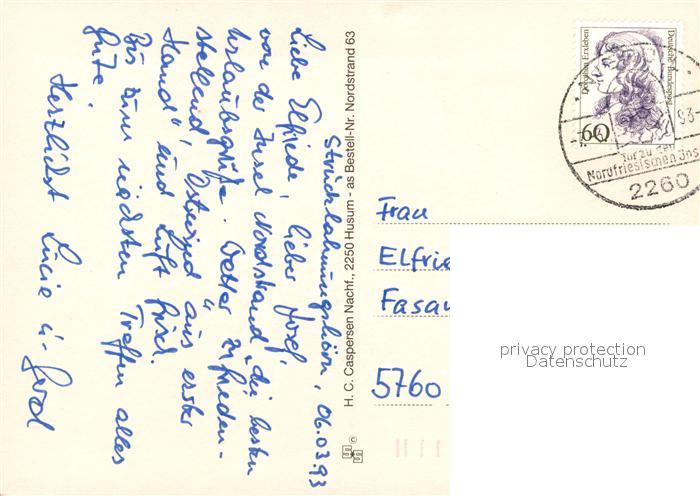 Strucklahnungshörn, 06.03.93
Liebe Elfriede, lieber Josef,
von der Insel Nordstrand die besten
Urlaubsgrüße. Wetter zufrieden-
stellend, "Osterzeit aus erster
Hand" und Luft frisch.
Bis zum nächsten Treffen alles
Gute!
Herzlichst Lucie u. Gerd
H. C. Caspersen Nachf., 2250 Husum - as Bestell-Nr. Nordstrand 63
Dorothea Erxleben
Deutsche Bundespost
60
93-
Tor zu den
Nordfriesischen Ins
2260
Frau
Elfrie
Fasan
5760
privacy protection
Datenschutz